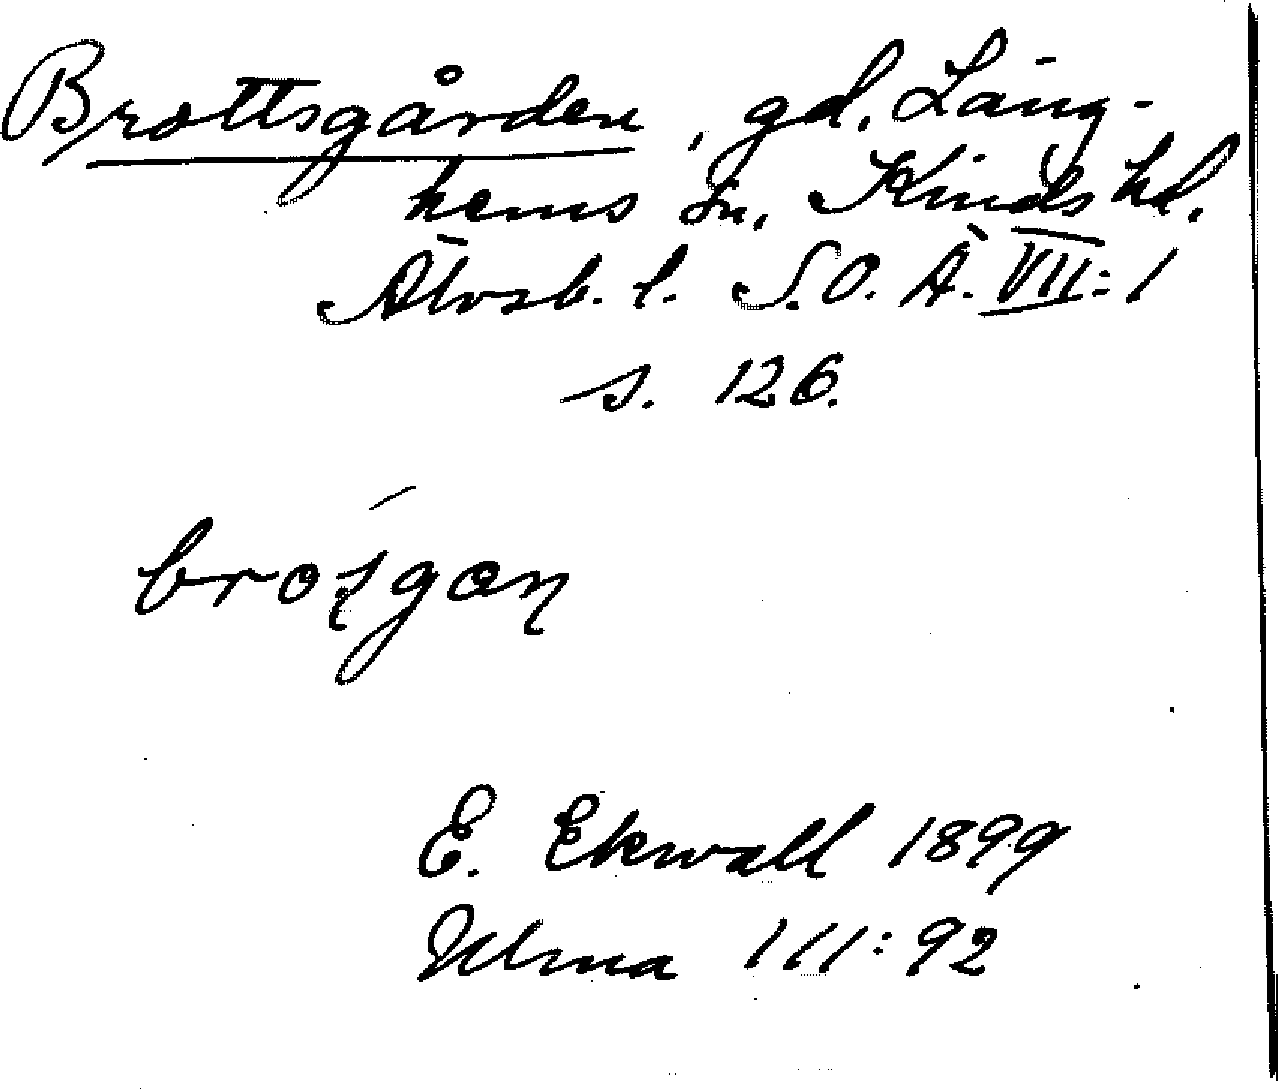 Brottsgården, gd. Läng-
hems sn, Kinds hd.
Älvsb. l. S.O.Ä. VII:1
s. 126.
E. Ekwall 1899
Ulma 111:92